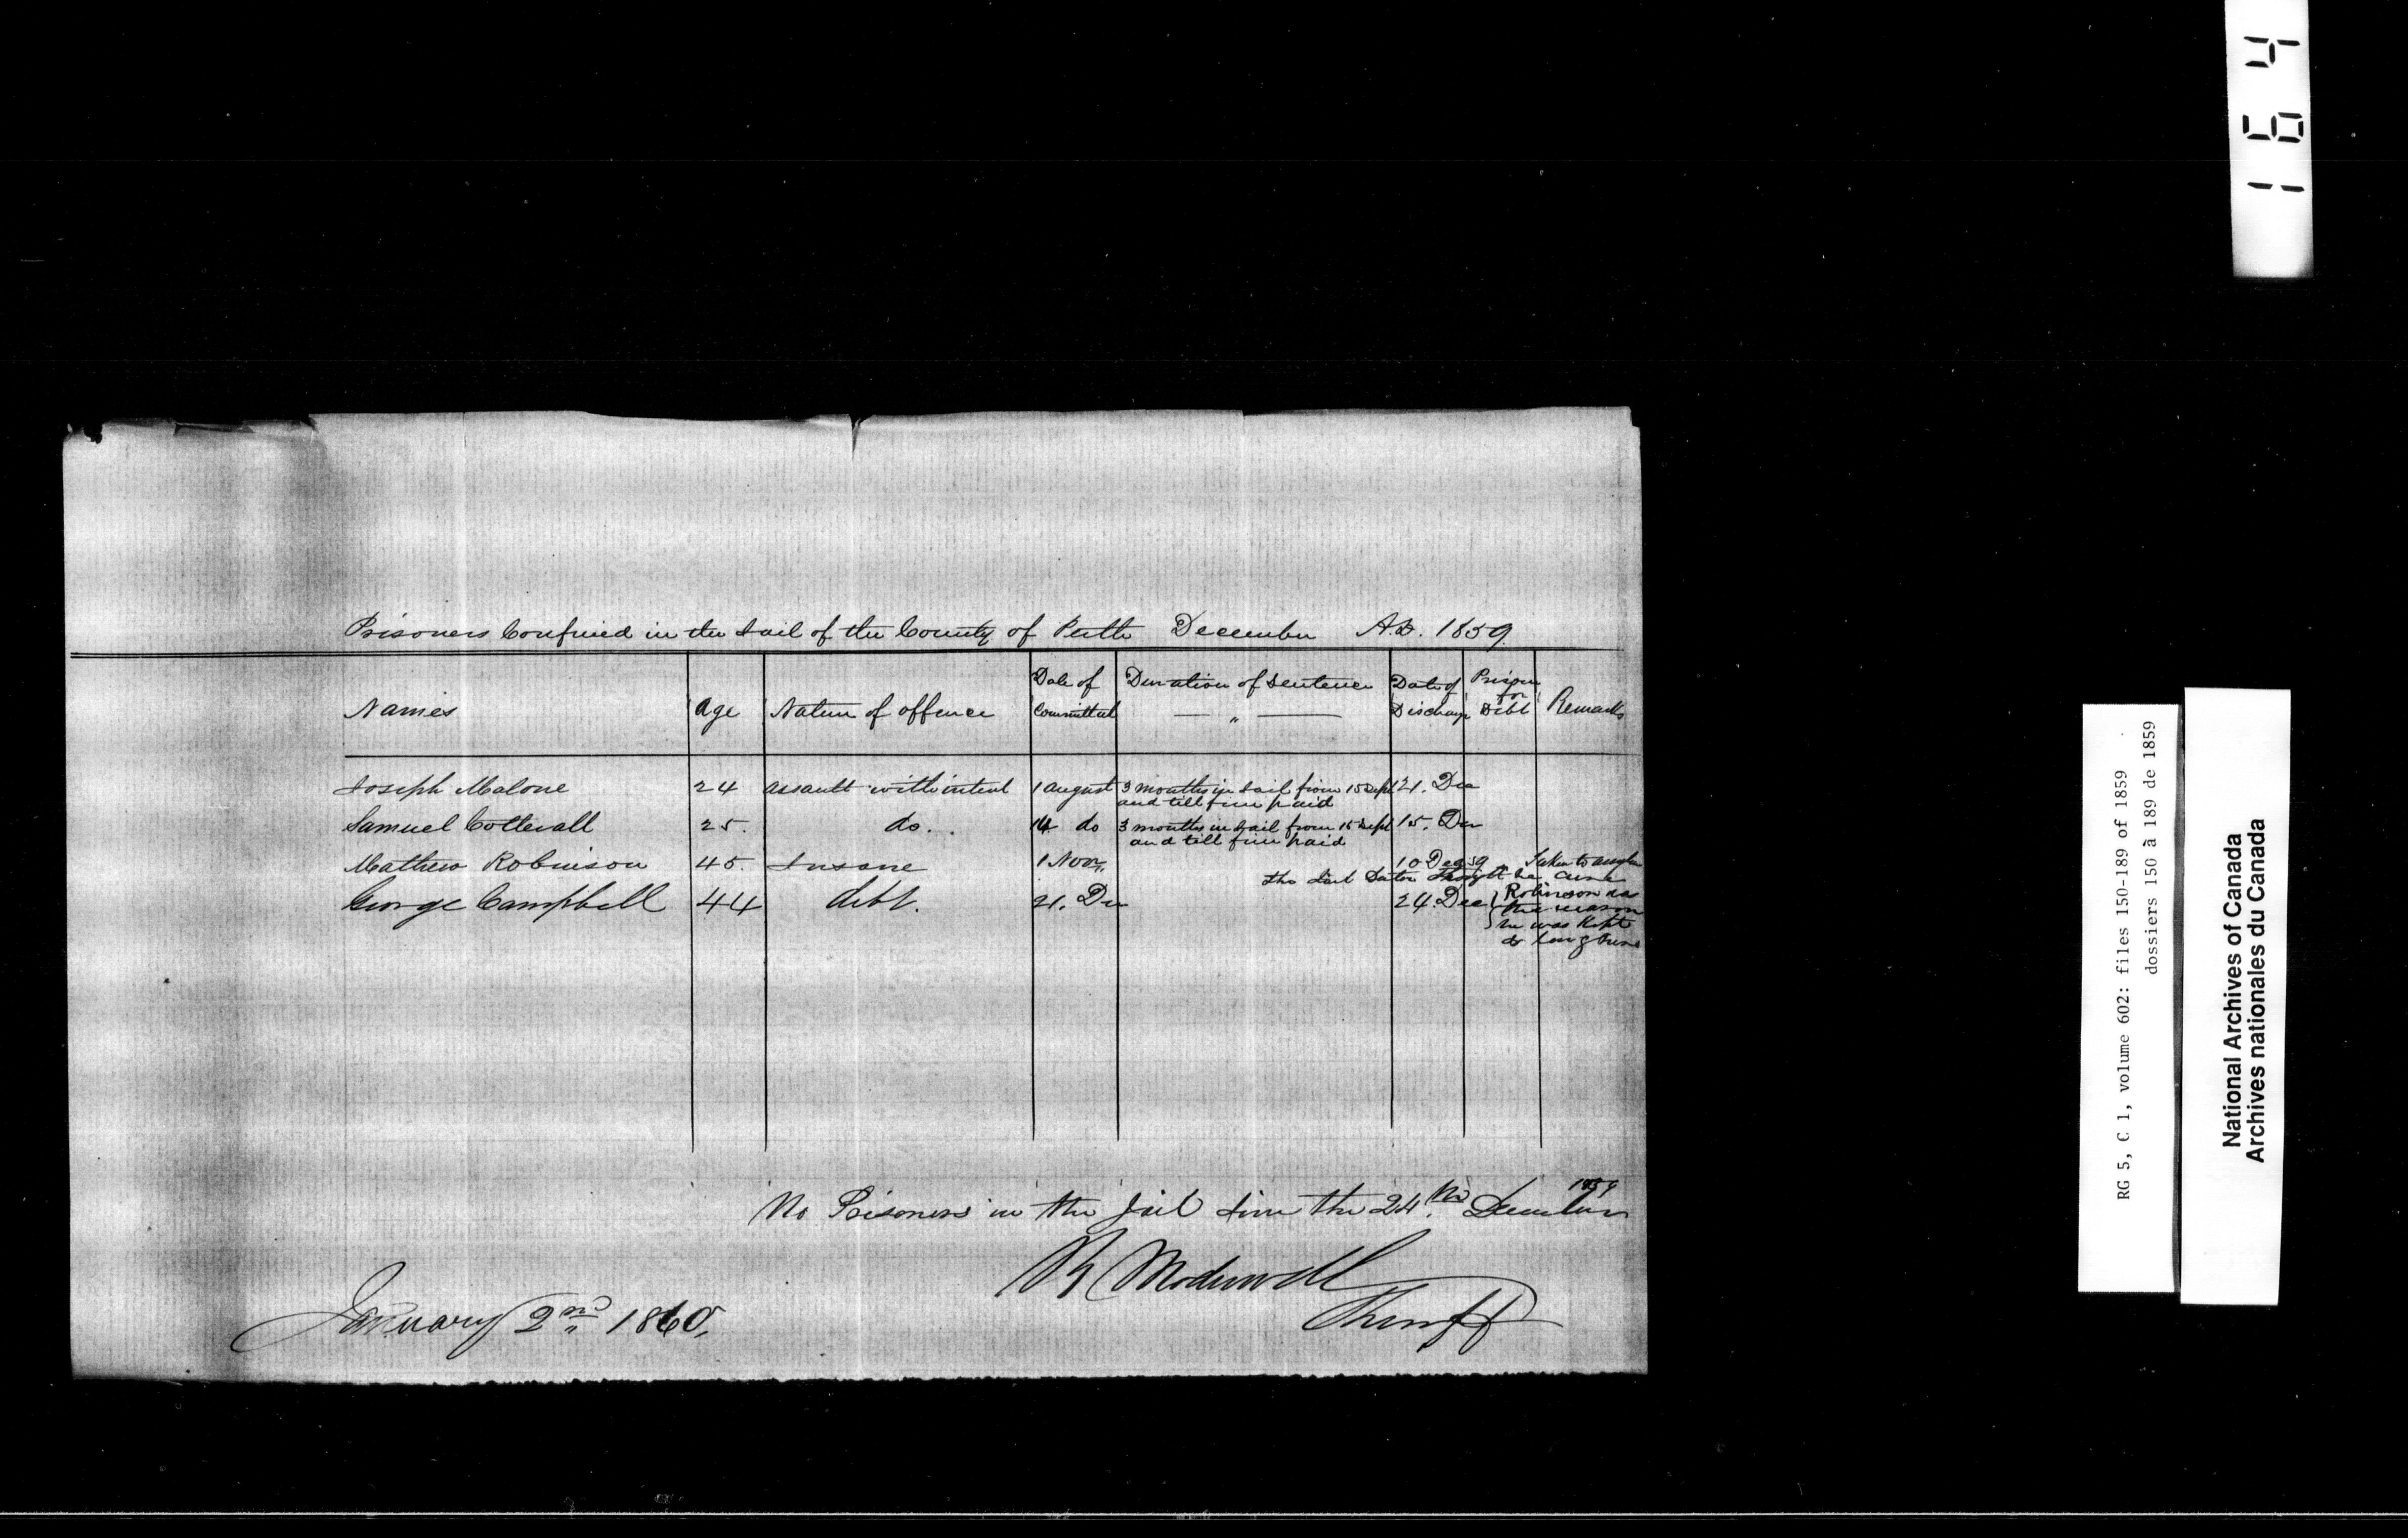 164
Prisoners Confined in the Jail of the County of Perth December A.D. 1859.
Names | Age | Nature of offence | Date of Committal | Duration of Sentence — " — | Date of Discharge | Prison for Debt | Remarks
Joseph Malone | 24 | assault with intent | 1 august | 3 months in Jail from 15 Sept and till fine paid | 21. Dec
Samuel Cotterall | 25. | do. | 14 do | 3 months in Jail from 15 Sept and till fine paid | 15. Dec
Mathew Robinson | 45. | Insane | 1 Nov. | 10 Dec 59 | Taken to asylum
the Jail Doctor thought he
George Campbell | 44 | debt. | 21. Dec | 24. Dec
Robinson was
the reason
he was Kept
so long
No Prisoners in the Jail since the 24th December 1859
R Moderwell
Sheriff
January 2nd 1860.
RG 5, C 1, volume 602: files 150-189 of 1859
dossiers 150 à 189 de 1859
National Archives of Canada
Archives nationales du Canada